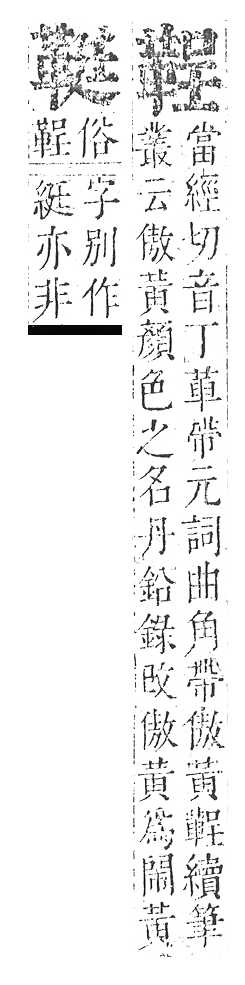 鞓
當經切音丁革帶元詞曲角帶傲黃鞓續筆
叢云傲黃顏色之名丹鉛錄改傲黃爲閙黃
䩠
俗
鞓
字别作
綎亦非